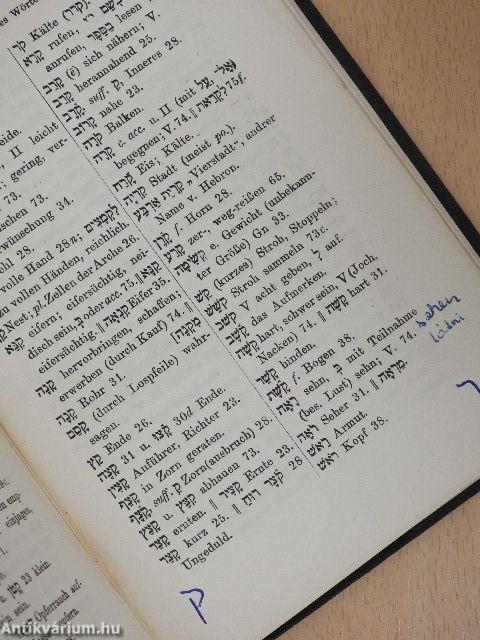 es Wörte
eide.
, II leicht
; gering, ver-
n.
schen 73.
wünschung 34.
hl 28.
volle Hand 28
zu vollen Händen, reichlich
Nest; pl. Zellen der Arche 26.
קִנֵּא eifern; eifersüchtig, nei-
disch sein; בְּ oder acc. 75. ‖ קַנָּא
eifersüchtig. ‖ קִנְאָה Eifer 35.
קָנָה hervorbringen, schaffen;
erwerben (durch Kauf) 74. ‖
קָנֶה Rohr 31.
קָסַם (durch Lospfeile) wahr-
sagen.
קֵץ Ende 26.
קָצֶה 31 u. Ende.
קָצִין Anführer, Richter 23.
קָצַף in Zorn geraten.
קֶצֶף suff. Zorn(ausbruch) 28.
קָצַץ u. abhauen 73.
קָצַר ernten. ‖ קָצִיר Ernte 23.
קָצֵר kurz 25. ‖ קֹצֶר רוּחַ 28
Ungeduld.
קֹר Kälte (קרר).
קָרָא rufen,
anrufen, lesen
קָרַב (ē) sich nähern; V.
קָרֵב herannahend 25.
קֶרֶב suff. Inneres 28.
קָרוֹב nahe 23.
קֹרָה Balken.
קָרָה c. acc. u. II (mit אֶל, עַל
begegnen; V. 74. ‖ לִקְרַאת 75f.
קֶרַח Eis; Kälte.
קִרְיָה Stadt (meist po.).
קִרְיַת אַרְבַּע „Vierstadt“, andrer
Name v. Hebron.
קֶרֶן f. Horn 28.
קָרַע zer-, weg-reißen 65.
קְשִׂיטָה e. Gewicht (unbekann-
ter Größe) Gn 33.
קַשׁ (kurzes) Stroh, Stoppeln;
קָשַׁשׁ Stroh sammeln 73c.
קָשַׁב V acht geben auf.
קֶשֶׁב das Aufmerken.
קָשָׁה hart, schwer sein, V (Joch,
Nacken) 74. ‖ קָשֶׁה hart 31.
קָשַׁר binden.
קֶשֶׁת f. Bogen 38.
רָאָה sehn, בְּ mit Teilnahme
(bes. Lust) sehn; V. 74.
רֹאֶה Seher 31. ‖ מַרְאֶה.
Armut.
רֹאשׁ Kopf 38.
sehen
látni
P
9c.
en emp-
einjagen,
u. 23 klein.
in sein.
(Opferrauch auf-
© www.antikvarium.hu
Antikvárium.hu